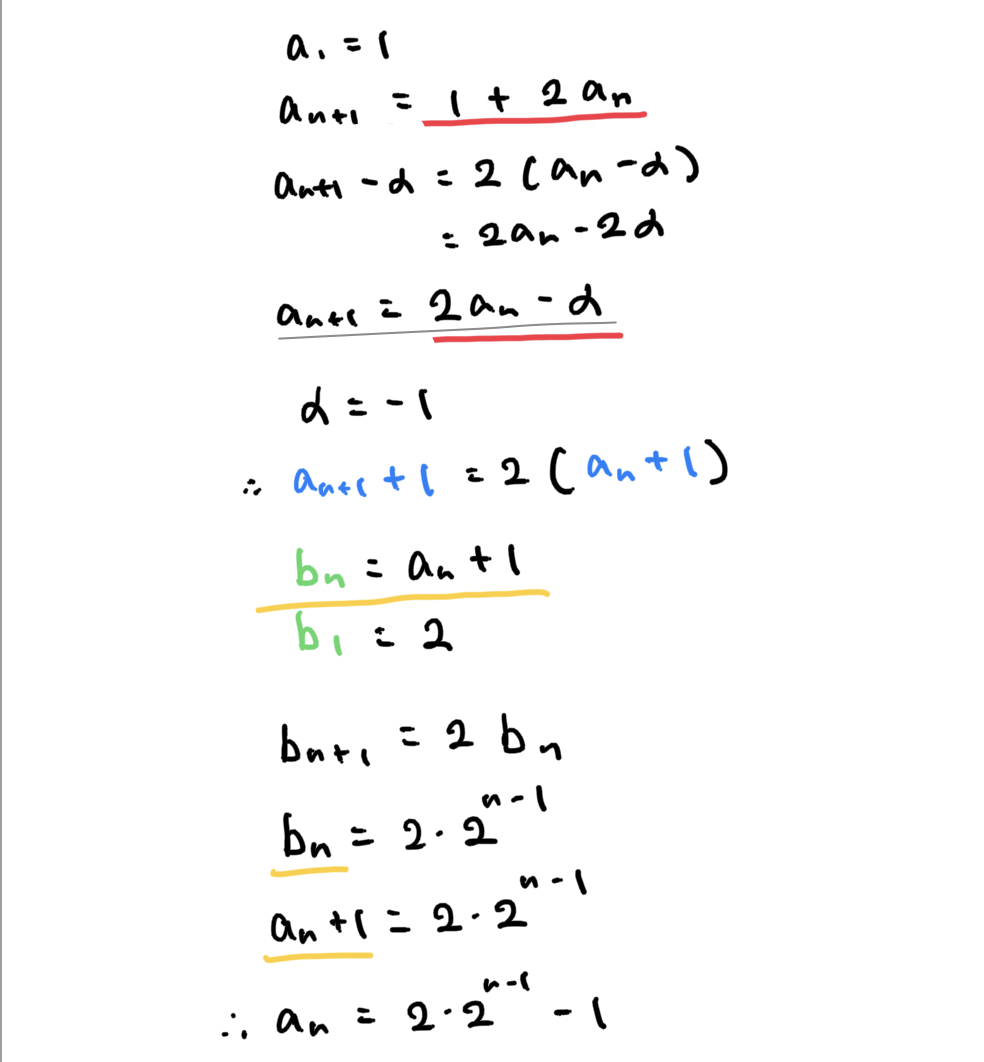 a₁ = 1
aₙ₊₁ = 1 + 2aₙ
aₙ₊₁ - α = 2(aₙ - α)
= 2aₙ - 2α
aₙ₊₁ = 2aₙ - α
α = -1
∴ aₙ₊₁ + 1 = 2(aₙ + 1)
bₙ = aₙ + 1
b₁ = 2
bₙ₊₁ = 2bₙ
bₙ = 2·2ⁿ⁻¹
aₙ + 1 = 2·2ⁿ⁻¹
∴ aₙ = 2·2ⁿ⁻¹ - 1